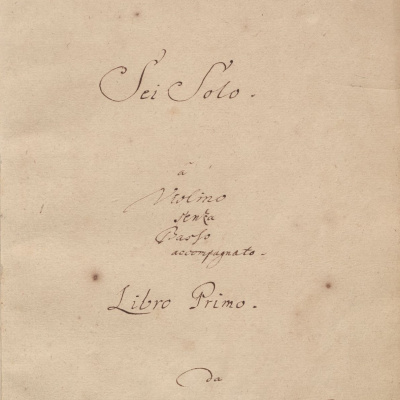 Sei Solo.
â
Violino
senza
Basso
accompagnato.
Libro Primo.
da